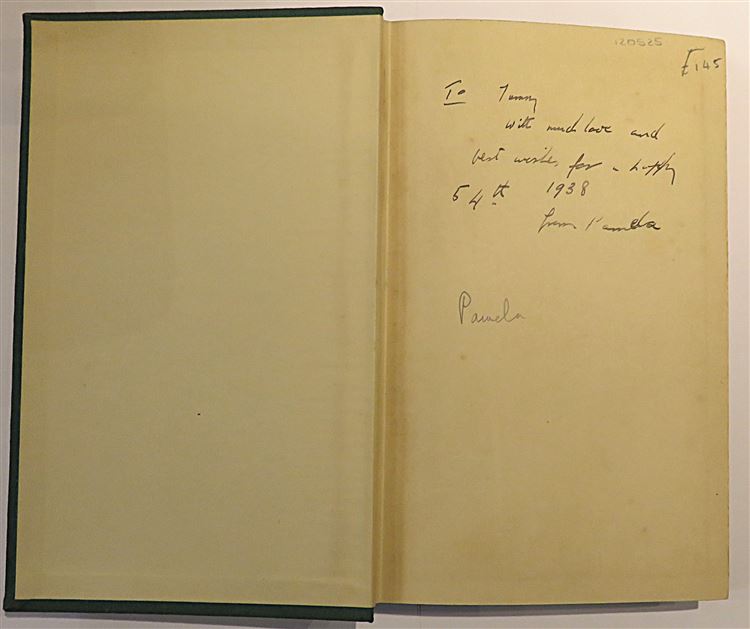 120525
£145
To Tommy
with much love and
best wishes for a happy
54th 1938
from Pamela
Pamela